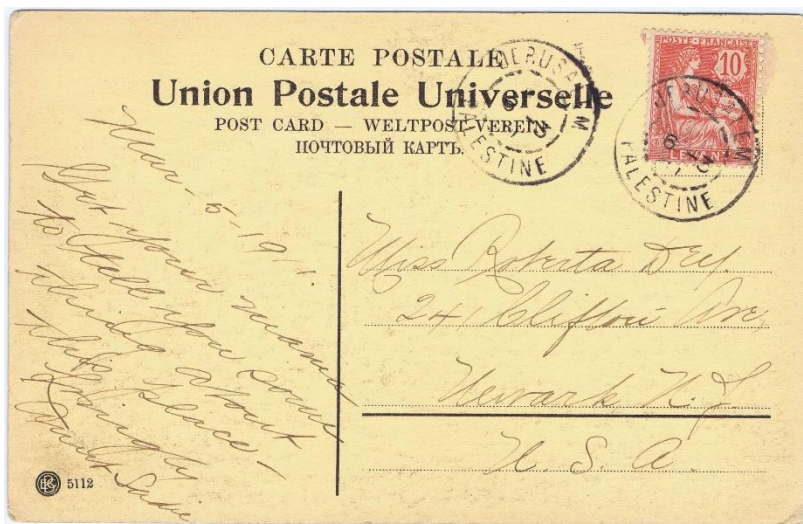 CARTE POSTALE
Union Postale Universelle
POST CARD — WELTPOST-VEREIN
ПОЧТОВЫЙ КАРТЪ.
JERUSALEM
6 3
11
PALESTINE
POSTE FRANÇAISE
10
LEVANT
JERUSALEM
6 3
11
PALESTINE
Mar - 5 - 1911.
Get your mama
to tell you some
things about
this place -
Lovingly
Aunt Susie
Miss Roberta Dey.
24 Clifton Ave,
Newark N.J.
U. S. A.
5112